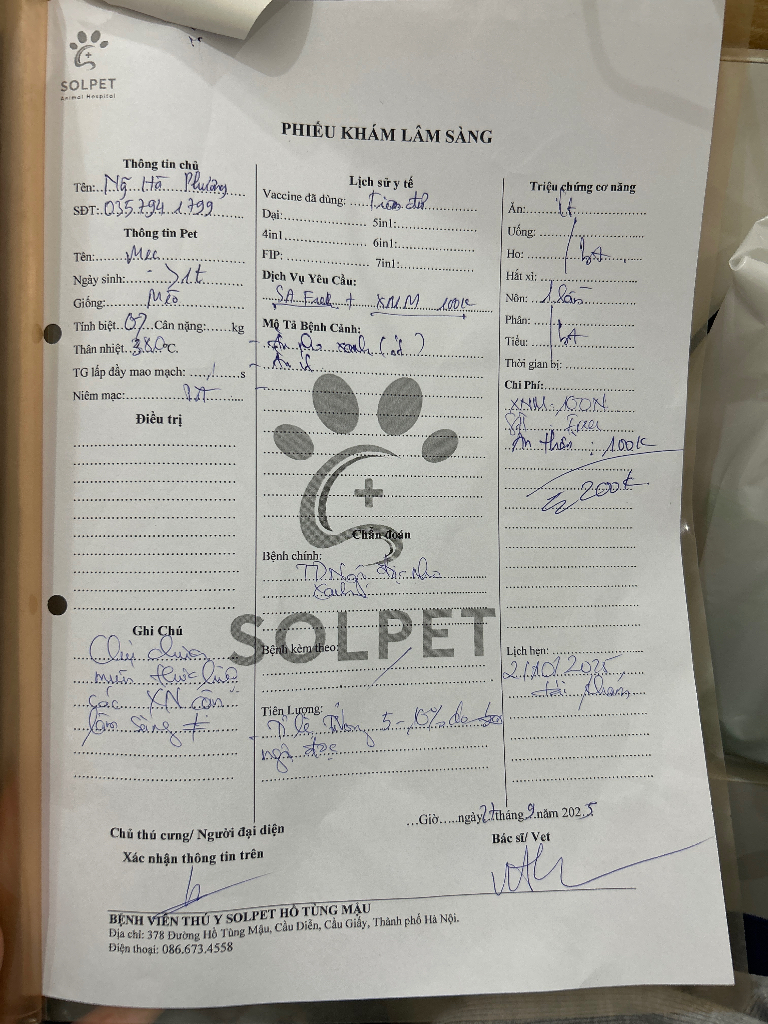 SOLPET
Animal Hospital
PHIẾU KHÁM LÂM SÀNG
Thông tin chủ
Tên: Ng Hà Phương
SĐT: 035.794.1799
Thông tin Pet
Tên:
Ngày sinh: >1t
Giống: Mèo
Tính biệt: Cân nặng: kg
Thân nhiệt: 38.0°C
TG lấp đầy mao mạch: s
Niêm mạc: BT
Điều trị
Ghi Chú
Chủ chưa
muốn thực hiện
các XN cận
lâm sàng
Lịch sử y tế
Vaccine đã dùng: Tiêm đủ
Dại: 5in1:
4in1 6in1:
FIP: 7in1:
Dịch Vụ Yêu Cầu:
SA Free + XNM 100K
Mô Tả Bệnh Cảnh:
Ăn nho xanh
Ăn ít
Chẩn đoán
Bệnh chính:
TD Ngộ độc nho
xanh
SOLPET
Bệnh kèm theo:
Tiên Lượng:
Tỉ lệ 5-10% do
ngộ độc
Triệu chứng cơ năng
Ăn: ít
Uống:
Ho: bt
Hắt xì:
Nôn: 1 lần
Phân:
Tiểu: bt
Thời gian bị:
Chi Phí:
XNM: 100K
SA Free
: 100K
200K
Lịch hẹn:
2/10/2025
tái khám
...Giờ.....ngày 27 tháng 9 năm 2025
Chủ thú cưng/ Người đại diện
Xác nhận thông tin trên
Bác sĩ/ Vet
BỆNH VIỆN THÚ Y SOLPET HỒ TÙNG MẬU
Địa chỉ: 378 Đường Hồ Tùng Mậu, Cầu Diễn, Cầu Giấy, Thành phố Hà Nội.
Điện thoại: 086.673.4558